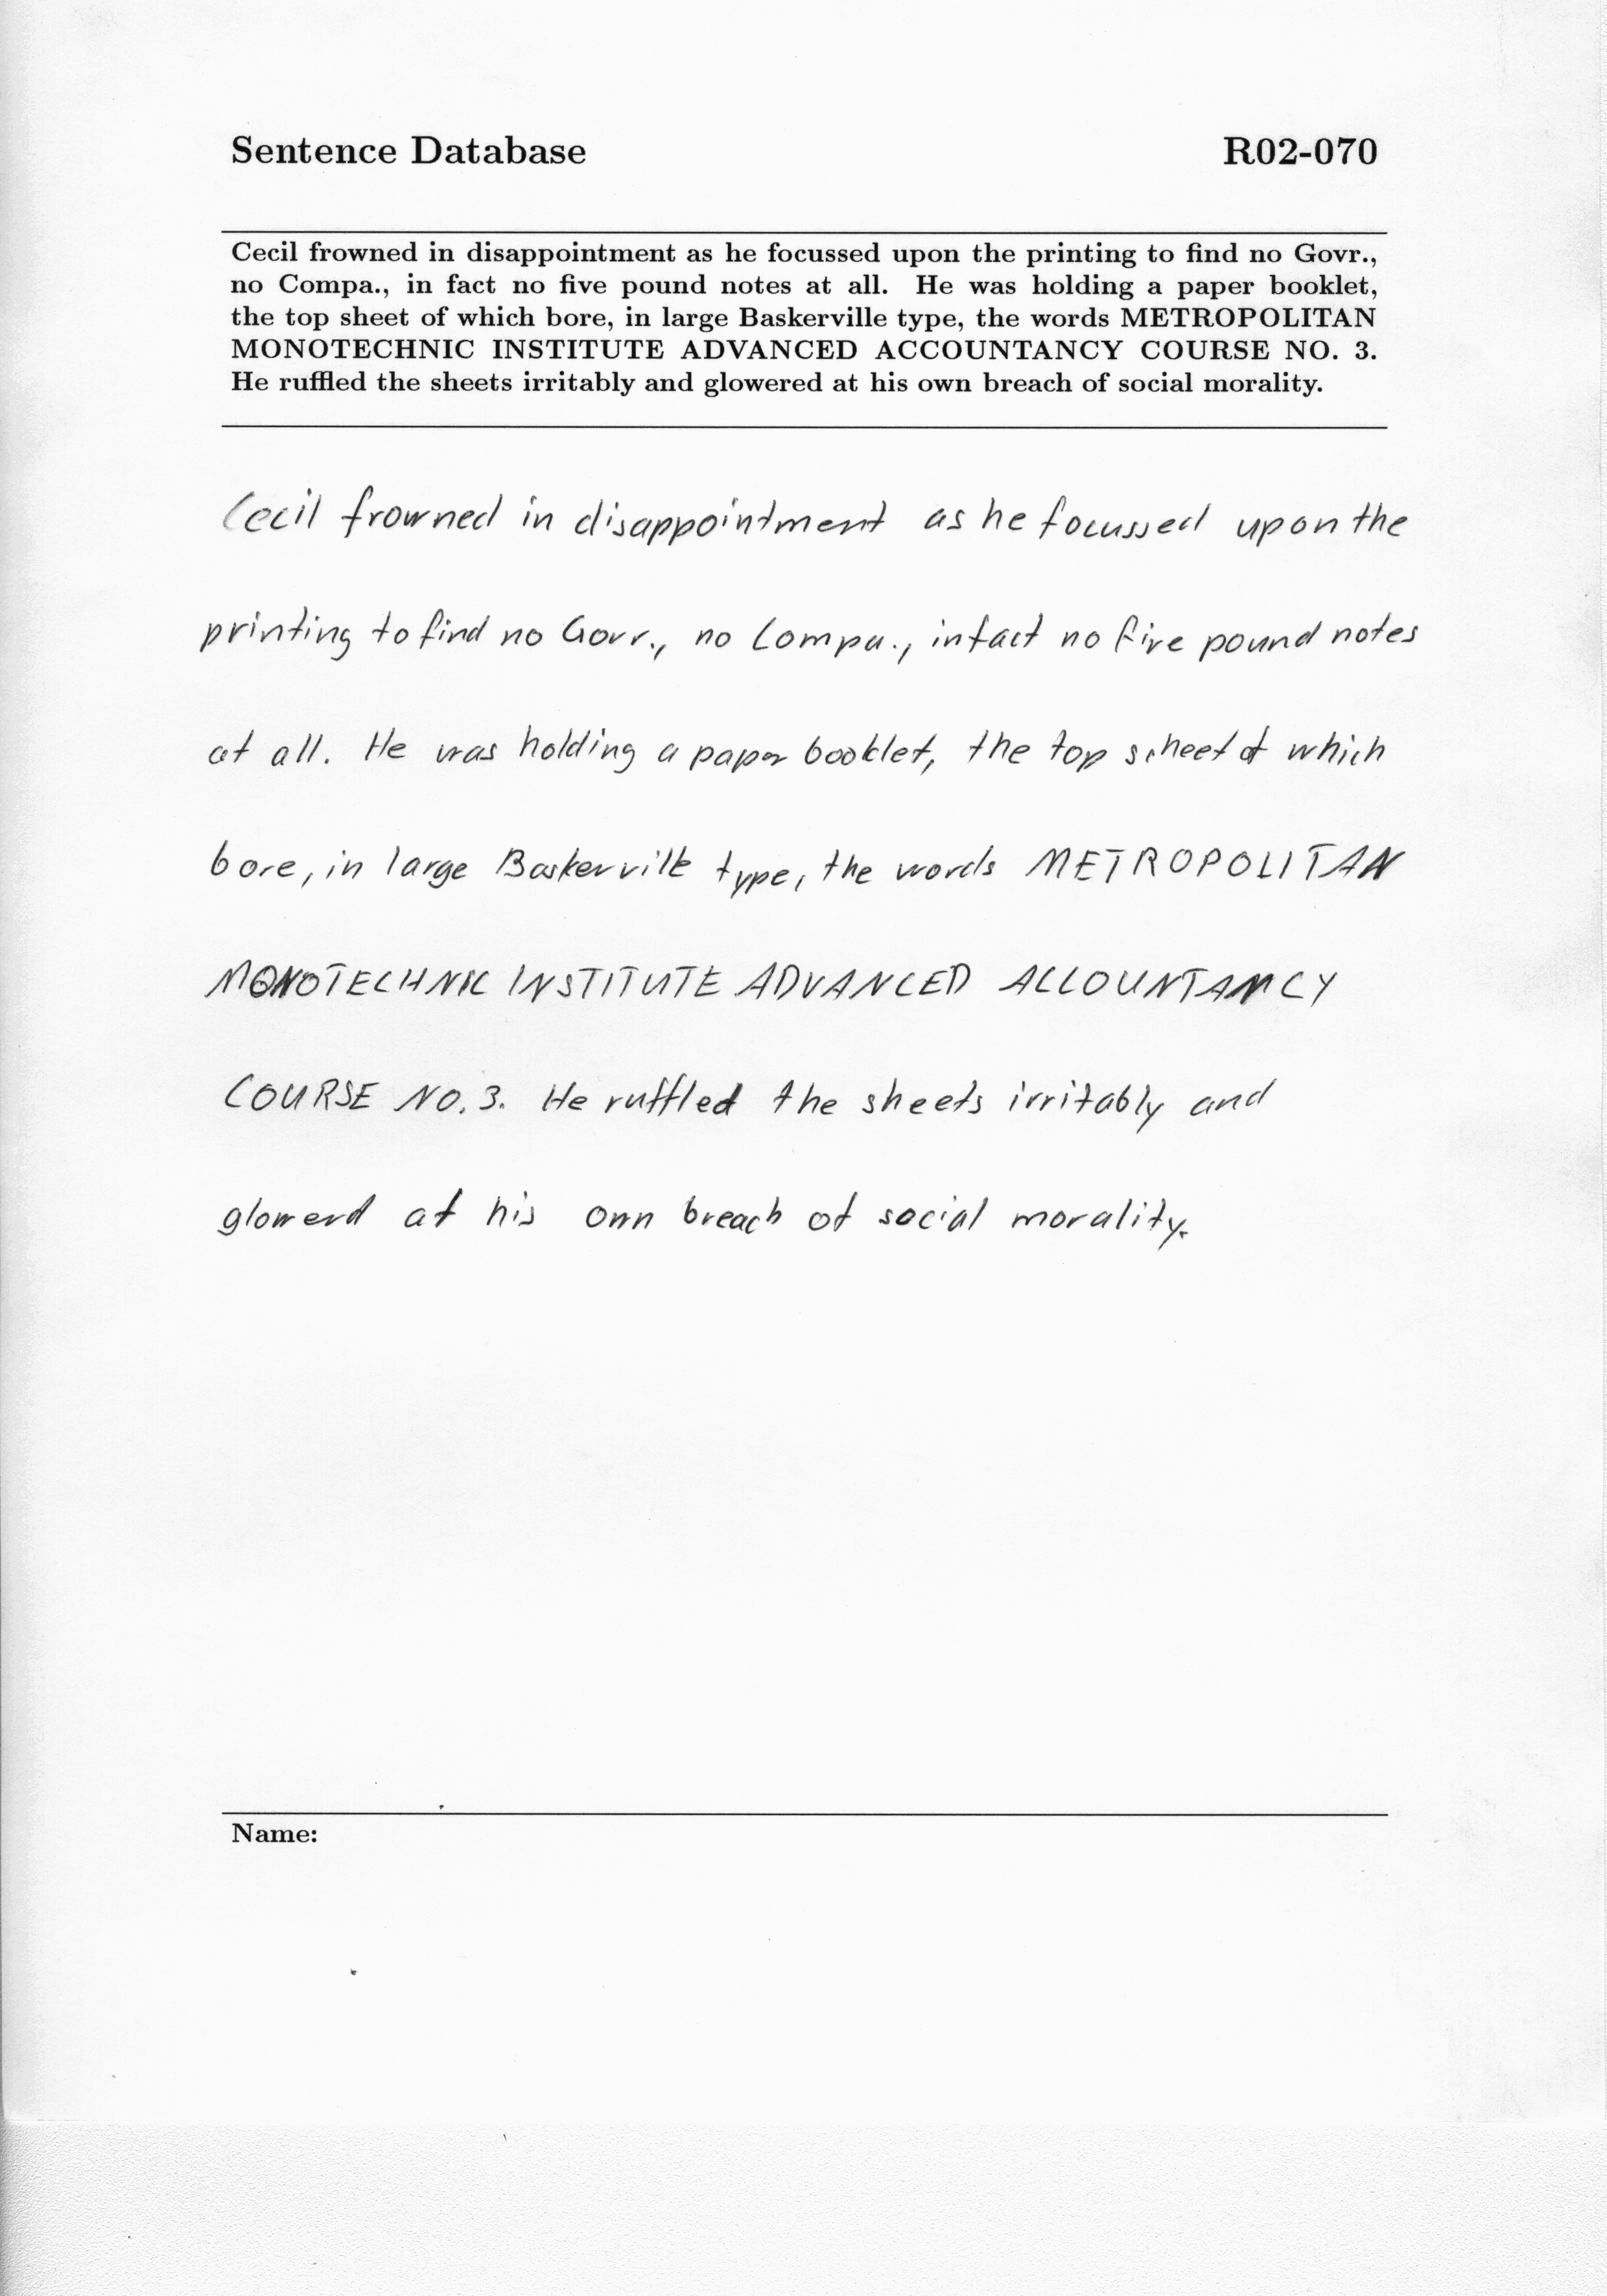 Sentence Database R02-070
Cecil frowned in disappointment as he focussed upon the printing to find no Govr.,
no Compa., in fact no five pound notes at all. He was holding a paper booklet,
the top sheet of which bore, in large Baskerville type, the words METROPOLITAN
MONOTECHNIC INSTITUTE ADVANCED ACCOUNTANCY COURSE NO. 3.
He ruffled the sheets irritably and glowered at his own breach of social morality.
Cecil frowned in disappointment as he focussed upon the
printing to find no Govr., no Compa., in fact no five pound notes
at all. He was holding a paper booklet, the top scheet of which
bore, in large Baskerville type, the words METROPOLITAN
MONOTECHNIC INSTITUTE ADVANCED ACCOUNTANCY
COURSE NO. 3. He ruffled the sheets irritably and
glowerd at his own breach of social morality.
Name: